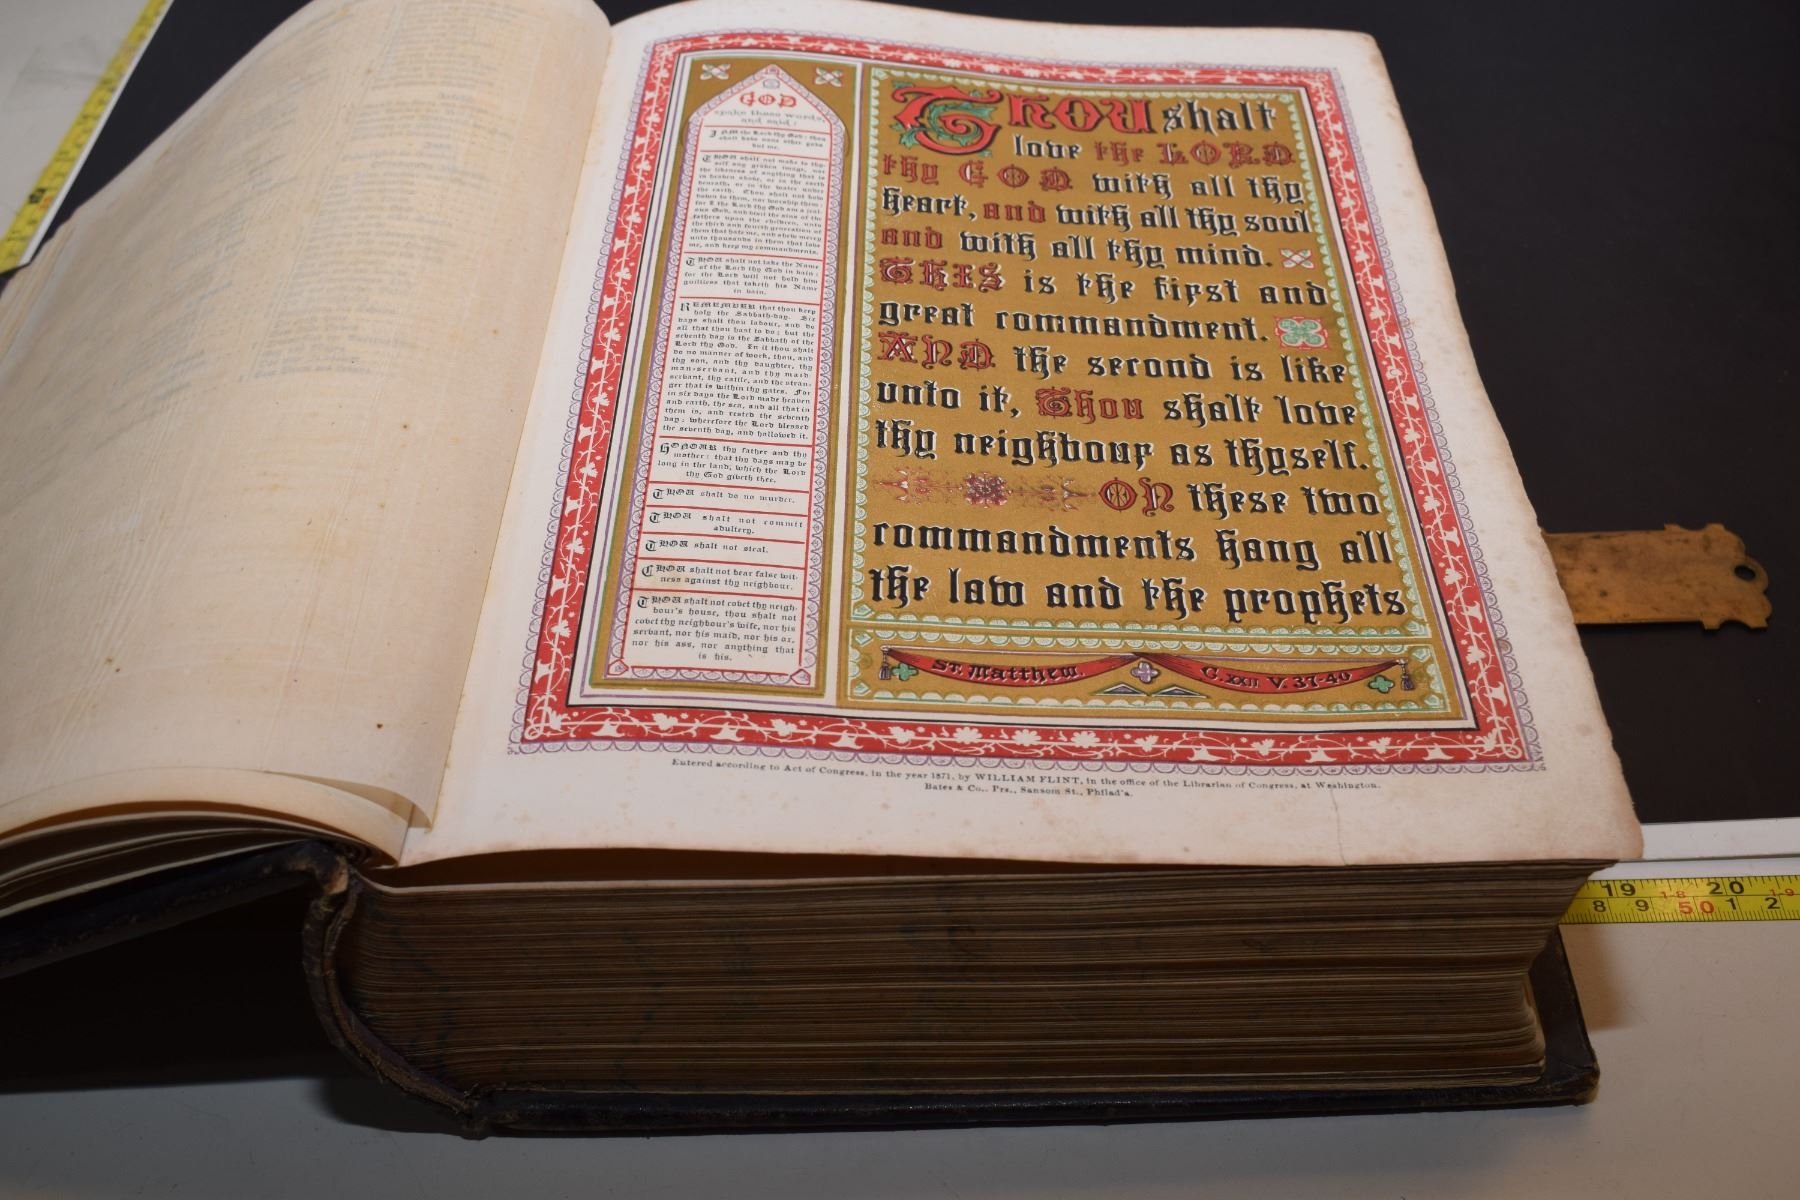 GOD
spake these words,
and said:
I AM the Lord thy God: thou
shalt have none other gods
but me.
THOU shalt not make to thy-
self any graven image, nor
the likeness of anything that is
in heaven above, or in the earth
beneath, or in the water under
the earth. Thou shalt not bow
down to them, nor worship them:
for I the Lord thy God am a jeal-
ous God, and visit the sins of the
fathers upon the children, unto
the third and fourth generation of
them that hate me, and shew mercy
unto thousands in them that love
me, and keep my commandments.
THOU shalt not take the Name
of the Lord thy God in vain:
for the Lord will not hold him
guiltless that taketh his Name
in vain.
REMEMBER that thou keep
holy the Sabbath-day. Six
days shalt thou labour, and do
all that thou hast to do; but the
seventh day is the Sabbath of the
Lord thy God. In it thou shalt
do no manner of work, thou, and
thy son, and thy daughter, thy
man-servant, and thy maid-
servant, thy cattle, and the stran-
ger that is within thy gates. For
in six days the Lord made heaven
and earth, the sea, and all that in
them is, and rested the seventh
day: wherefore the Lord blessed
the seventh day, and hallowed it.
HONOUR thy father and thy
mother: that thy days may be
long in the land, which the Lord
thy God giveth thee.
THOU shalt do no murder.
THOU shalt not commit
adultery.
THOU shalt not steal.
THOU shalt not bear false wit-
ness against thy neighbour.
THOU shalt not covet thy neigh-
bour's house, thou shalt not
covet thy neighbour's wife, nor his
servant, nor his maid, nor his ox,
nor his ass, nor anything that
is his.
Thou shalt
love the LORD
thy GOD with all thy
heart, and with all thy soul
and with all thy mind.
THIS is the first and
great commandment.
AND the second is like
unto it, Thou shalt love
thy neighbour as thyself.
ON these two
commandments hang all
the law and the prophets
St. Matthew. C. XXII V. 37-40
Entered according to Act of Congress, in the year 1871, by WILLIAM FLINT, in the office of the Librarian of Congress, at Washington.
Bates & Co., Prs., Sansom St., Philad'a.
19 18 20 19
8 9 50 1 2